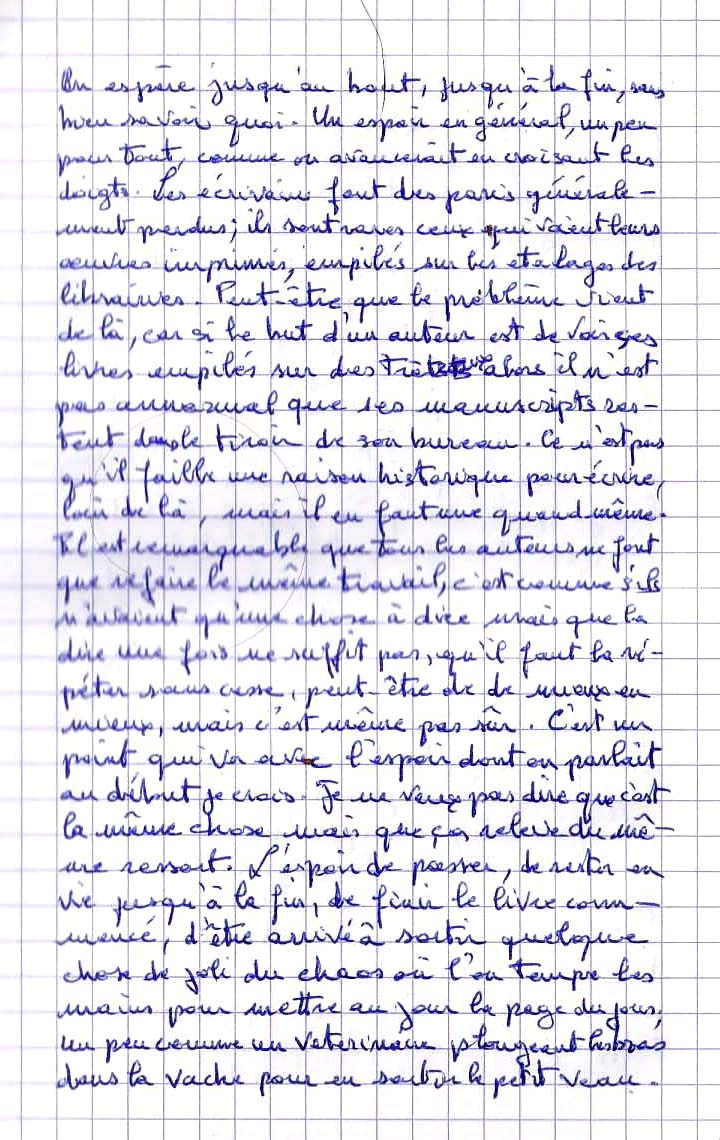 On espère jusqu'au bout, jusqu'à la fin, sans
bien savoir quoi. Un espoir en général, un peu
pour tout, comme on avancerait en croisant les
doigts. Les écrivains font des paris générale-
ment perdus ; ils sont rares ceux qui voient leurs
oeuvres imprimés, empilés sur les étalages des
librairies. Peut-être que le problème vient
de là, car si le but d'un auteur est de voir ses
livres empilés sur des alors il n'est
pas annormal que ses manuscripts res-
tent dans le tiroir de son bureau. Ce n'est pas
qu'il faille une raison historique pour écrire,
loin de là, mais il en faut une quand même.
Il est remarquable que tous les auteurs ne font
que refaire le même travail, c'est comme s'ils
n'avaient qu'une chose à dire mais que la
dire une fois ne suffit pas, qu'il faut la ré-
péter sans cesse, peut-être de de mieux en
mieux, mais c'est même pas sûr. C'est un
point qui va avec l'espoir dont on parlait
au début je crois. Je ne veux pas dire que c'est
la même chose mais que ça relève du mê-
me ressort. L'espoir de passer, de rester en
vie jusqu'à la fin, de finir le livre com-
mencé, d'être arrivé à sortir quelque
chose de joli du chaos où l'on trempe les
mains pour mettre au jour la page du jour,
un peu comme un vétérinaire plongeant les bras
dans la vache pour en sortir le petit veau.